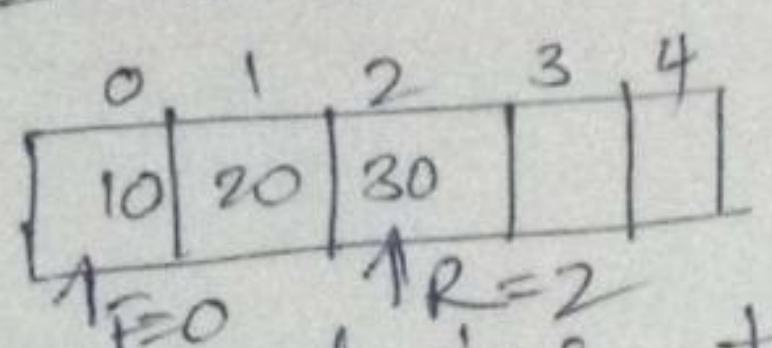 0 1 2 3 4
10 20 30
F=0 R=2